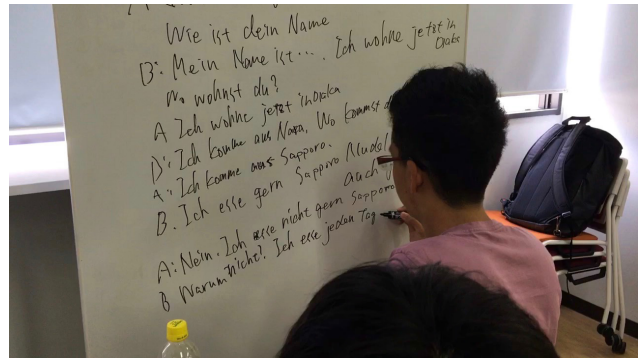 Wie ist dein Name
B: Mein Name ist.... Ich wohne jetzt in Osaka
Wo wohnst du?
A Ich wohne jetzt in Osaka
B: Ich komme aus Nara. Wo kommst
A: Ich komme aus Sapporo.
B. Ich esse gern Sapporo Nudel
auch
A: Nein. Ich esse nicht gern Sapporo
B Warum nicht? Ich esse jeden Tag